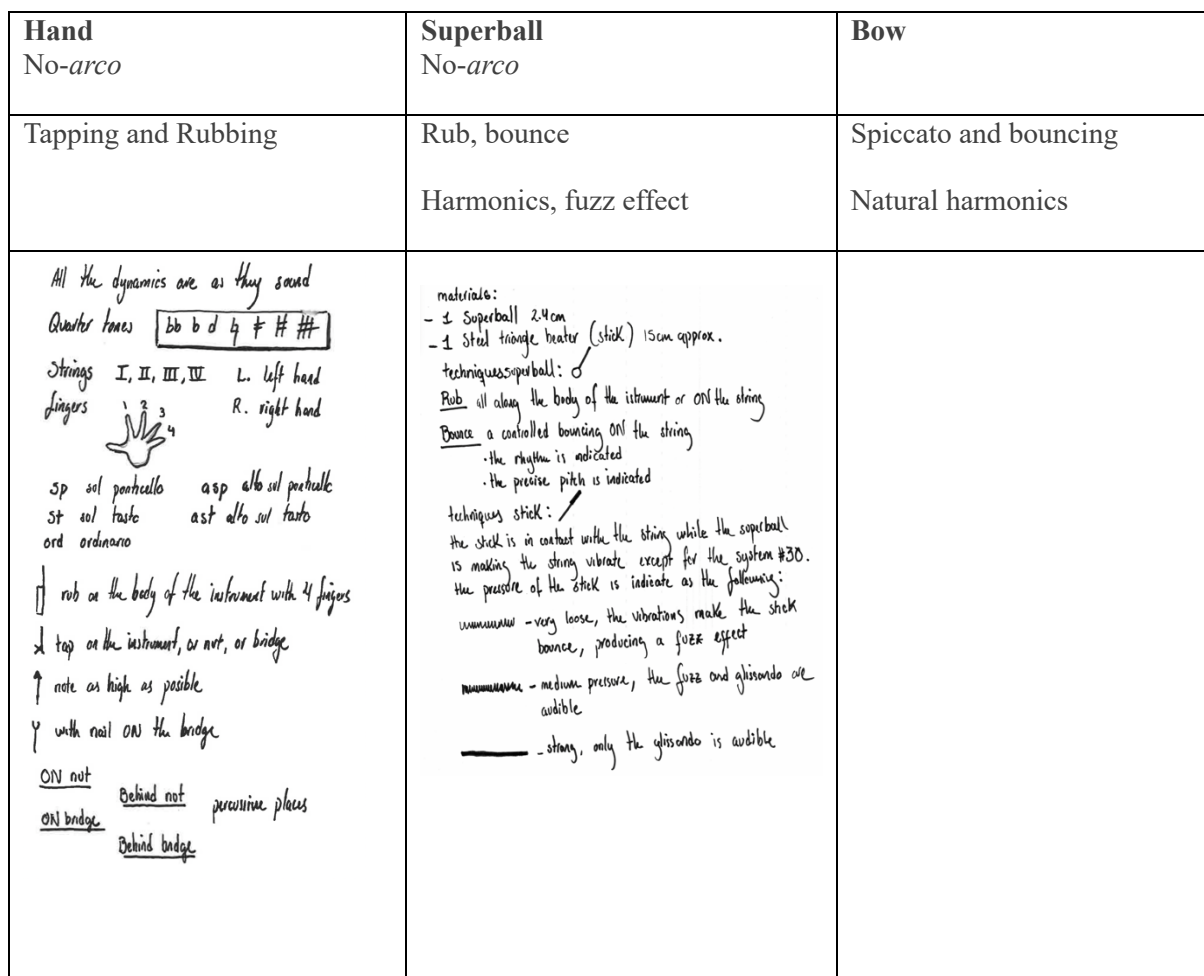 Hand
No-arco
Superball
No-arco
Bow
Tapping and Rubbing
Rub, bounce
Harmonics, fuzz effect
Spiccato and bouncing
Natural harmonics
All the dynamics are as they sound
Quarter tones bb b d ♮ ‡ # ⋕
Strings I, II, III, IV L. left hand
fingers R. right hand
1 2 3 4
sp sol ponticello asp alto sul ponticello
st sol tasto ast alto sul tasto
ord ordinario
rub on the body of the instrument with 4 fingers
tap on the instrument, or nut, or bridge
note as high as posible
with nail ON the bridge
ON nut
Behind nut
percussive places
ON bridge
Behind bridge
materials:
- 1 Superball 2.4cm
- 1 Steel triangle beater (stick) 15cm approx.
techniques superball:
Rub all along the body of the istrument or ON the string
Bounce a controlled bouncing ON the string
· the rhythm is indicated
· the precise pitch is indicated
techniques stick:
the stick is in contact with the string while the superball
is making the string vibrate except for the system #30.
the pressure of the stick is indicate as the following:
- very loose, the vibrations make the stick
bounce, producing a fuzz effect
- medium pressure, the fuzz and glissando are
audible
- strong, only the glissando is audible